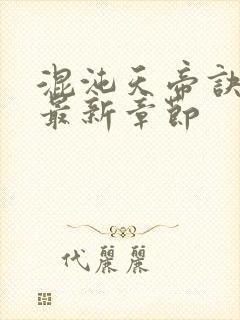 混沌天帝訣
最新章節
代麗麗